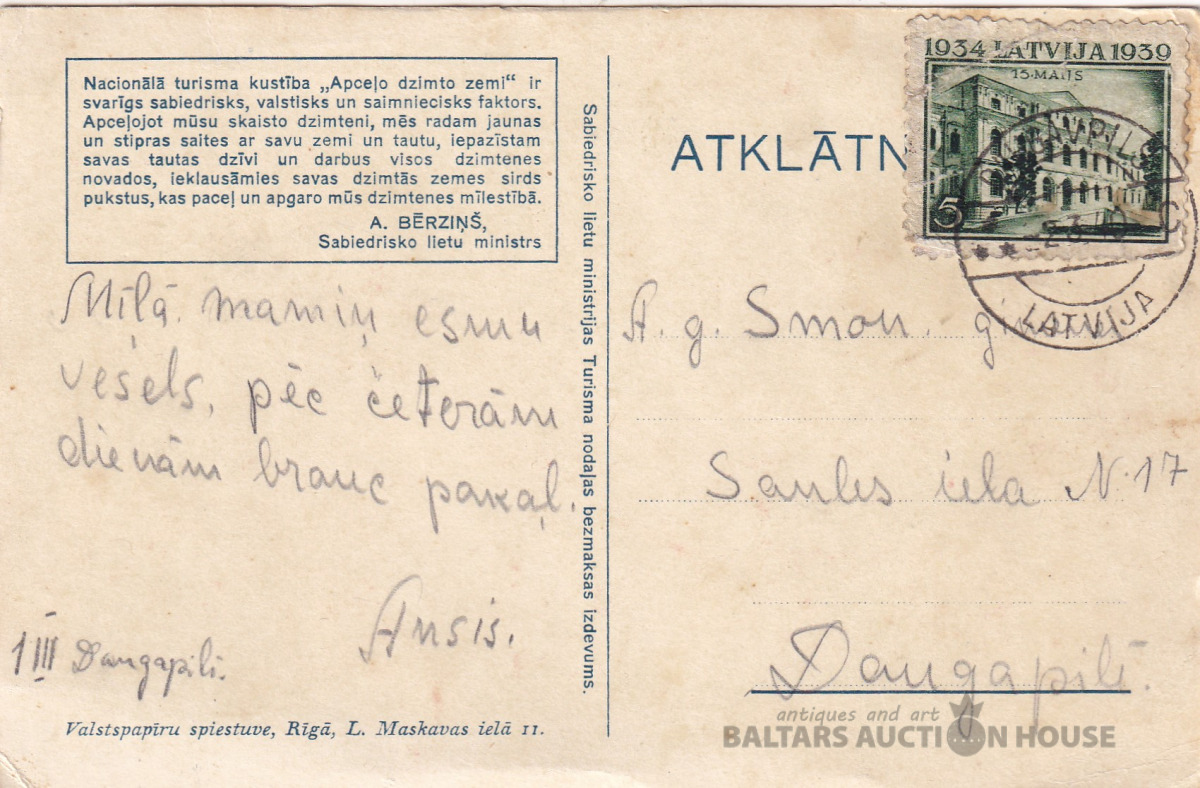 Nacionālā turisma kustība „Apceļo dzimto zemi“ ir
svarīgs sabiedrisks, valstisks un saimniecisks faktors.
Apceļojot mūsu skaisto dzimteni, mēs radam jaunas
un stipras saites ar savu zemi un tautu, iepazīstam
savas tautas dzīvi un darbus visos dzimtenes
novados, ieklausāmies savas dzimtās zemes sirds
pukstus, kas paceļ un apgaro mūs dzimtenes mīlestībā.
A. BĒRZIŅŠ,
Sabiedrisko lietu ministrs
Mīļā mamiņ esmu
vesels, pēc četerām
dienām brauc pakaļ.
Ansis.
1 III Daugapilī.
Valstspapīru spiestuve, Rīgā, L. Maskavas ielā 11.
Sabiedrisko lietu ministrijas Turisma nodaļas bezmaksas izdevums.
ATKLĀTN
1934 LATVIJA 1939
15·MAIJS
5
LATVIJA
A. g. Smon.
Saules iela N. 17
Daugapilī.
antiques and art
BALTARS AUCTION HOUSE